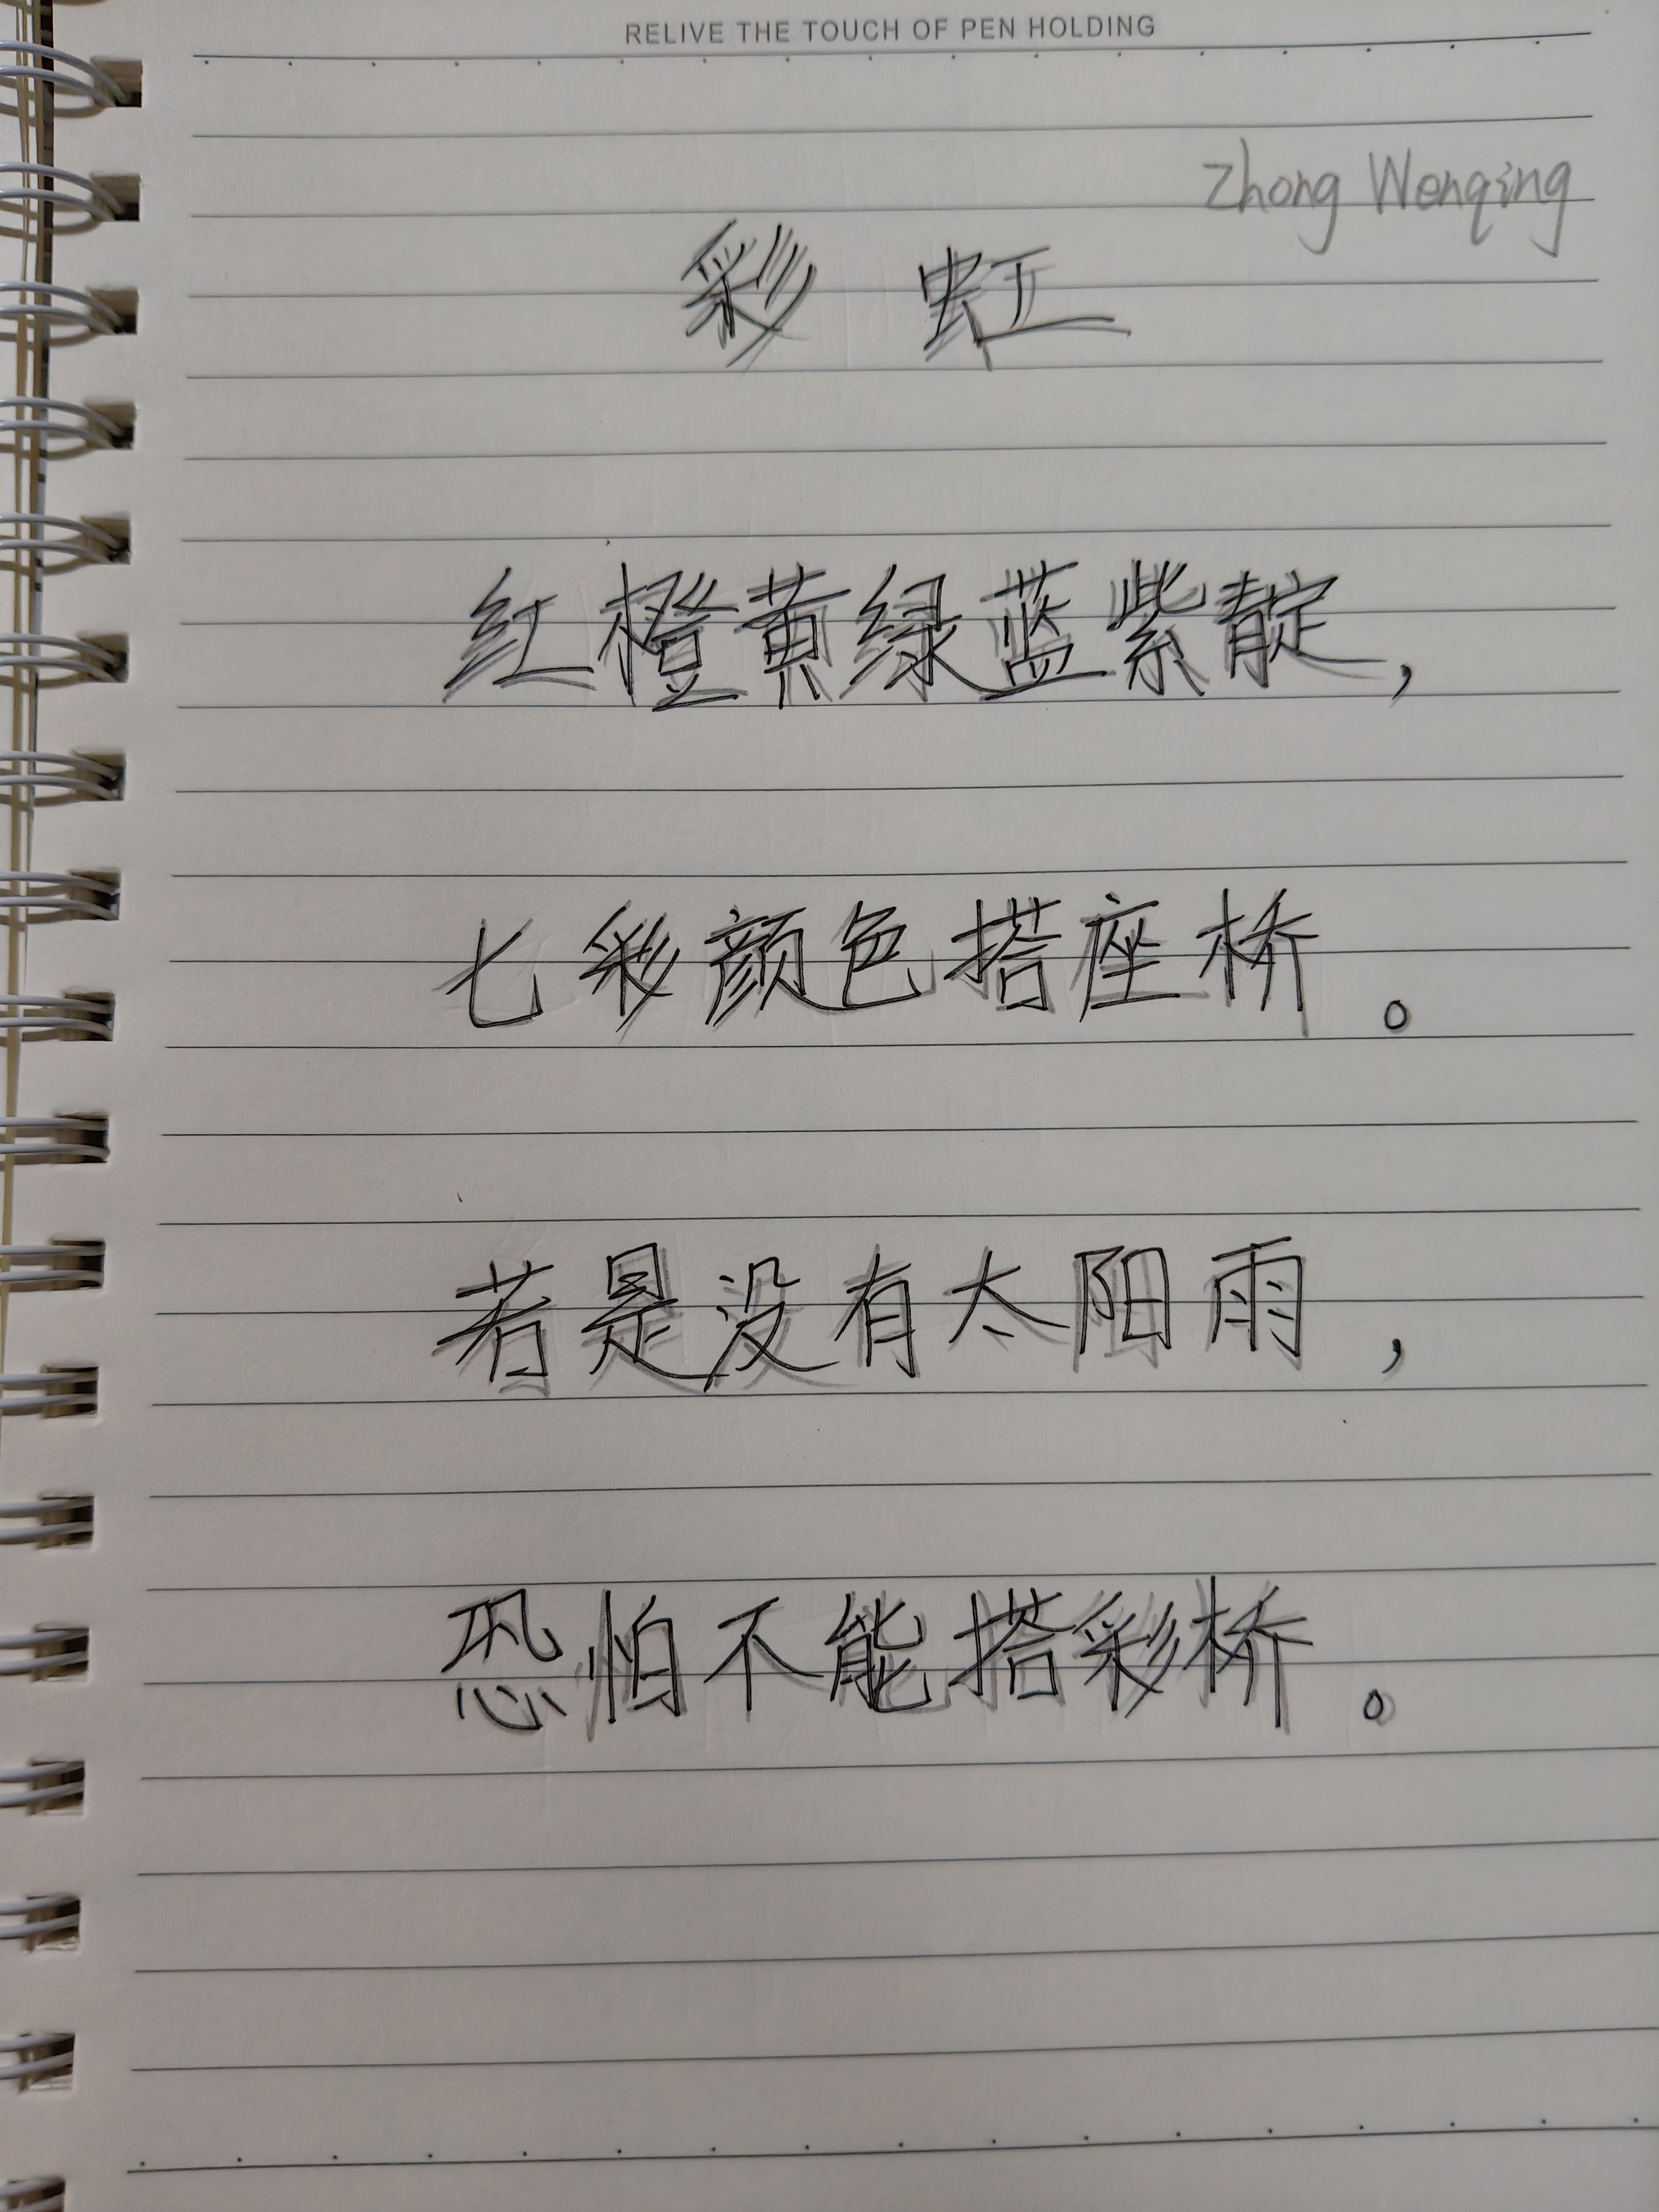 RELIVE THE TOUCH OF PEN HOLDING
Zhong Wenqing
彩虹
红橙黄绿蓝紫靛，
七彩颜色搭座桥。
若是没有太阳雨，
恐怕不能搭彩桥。